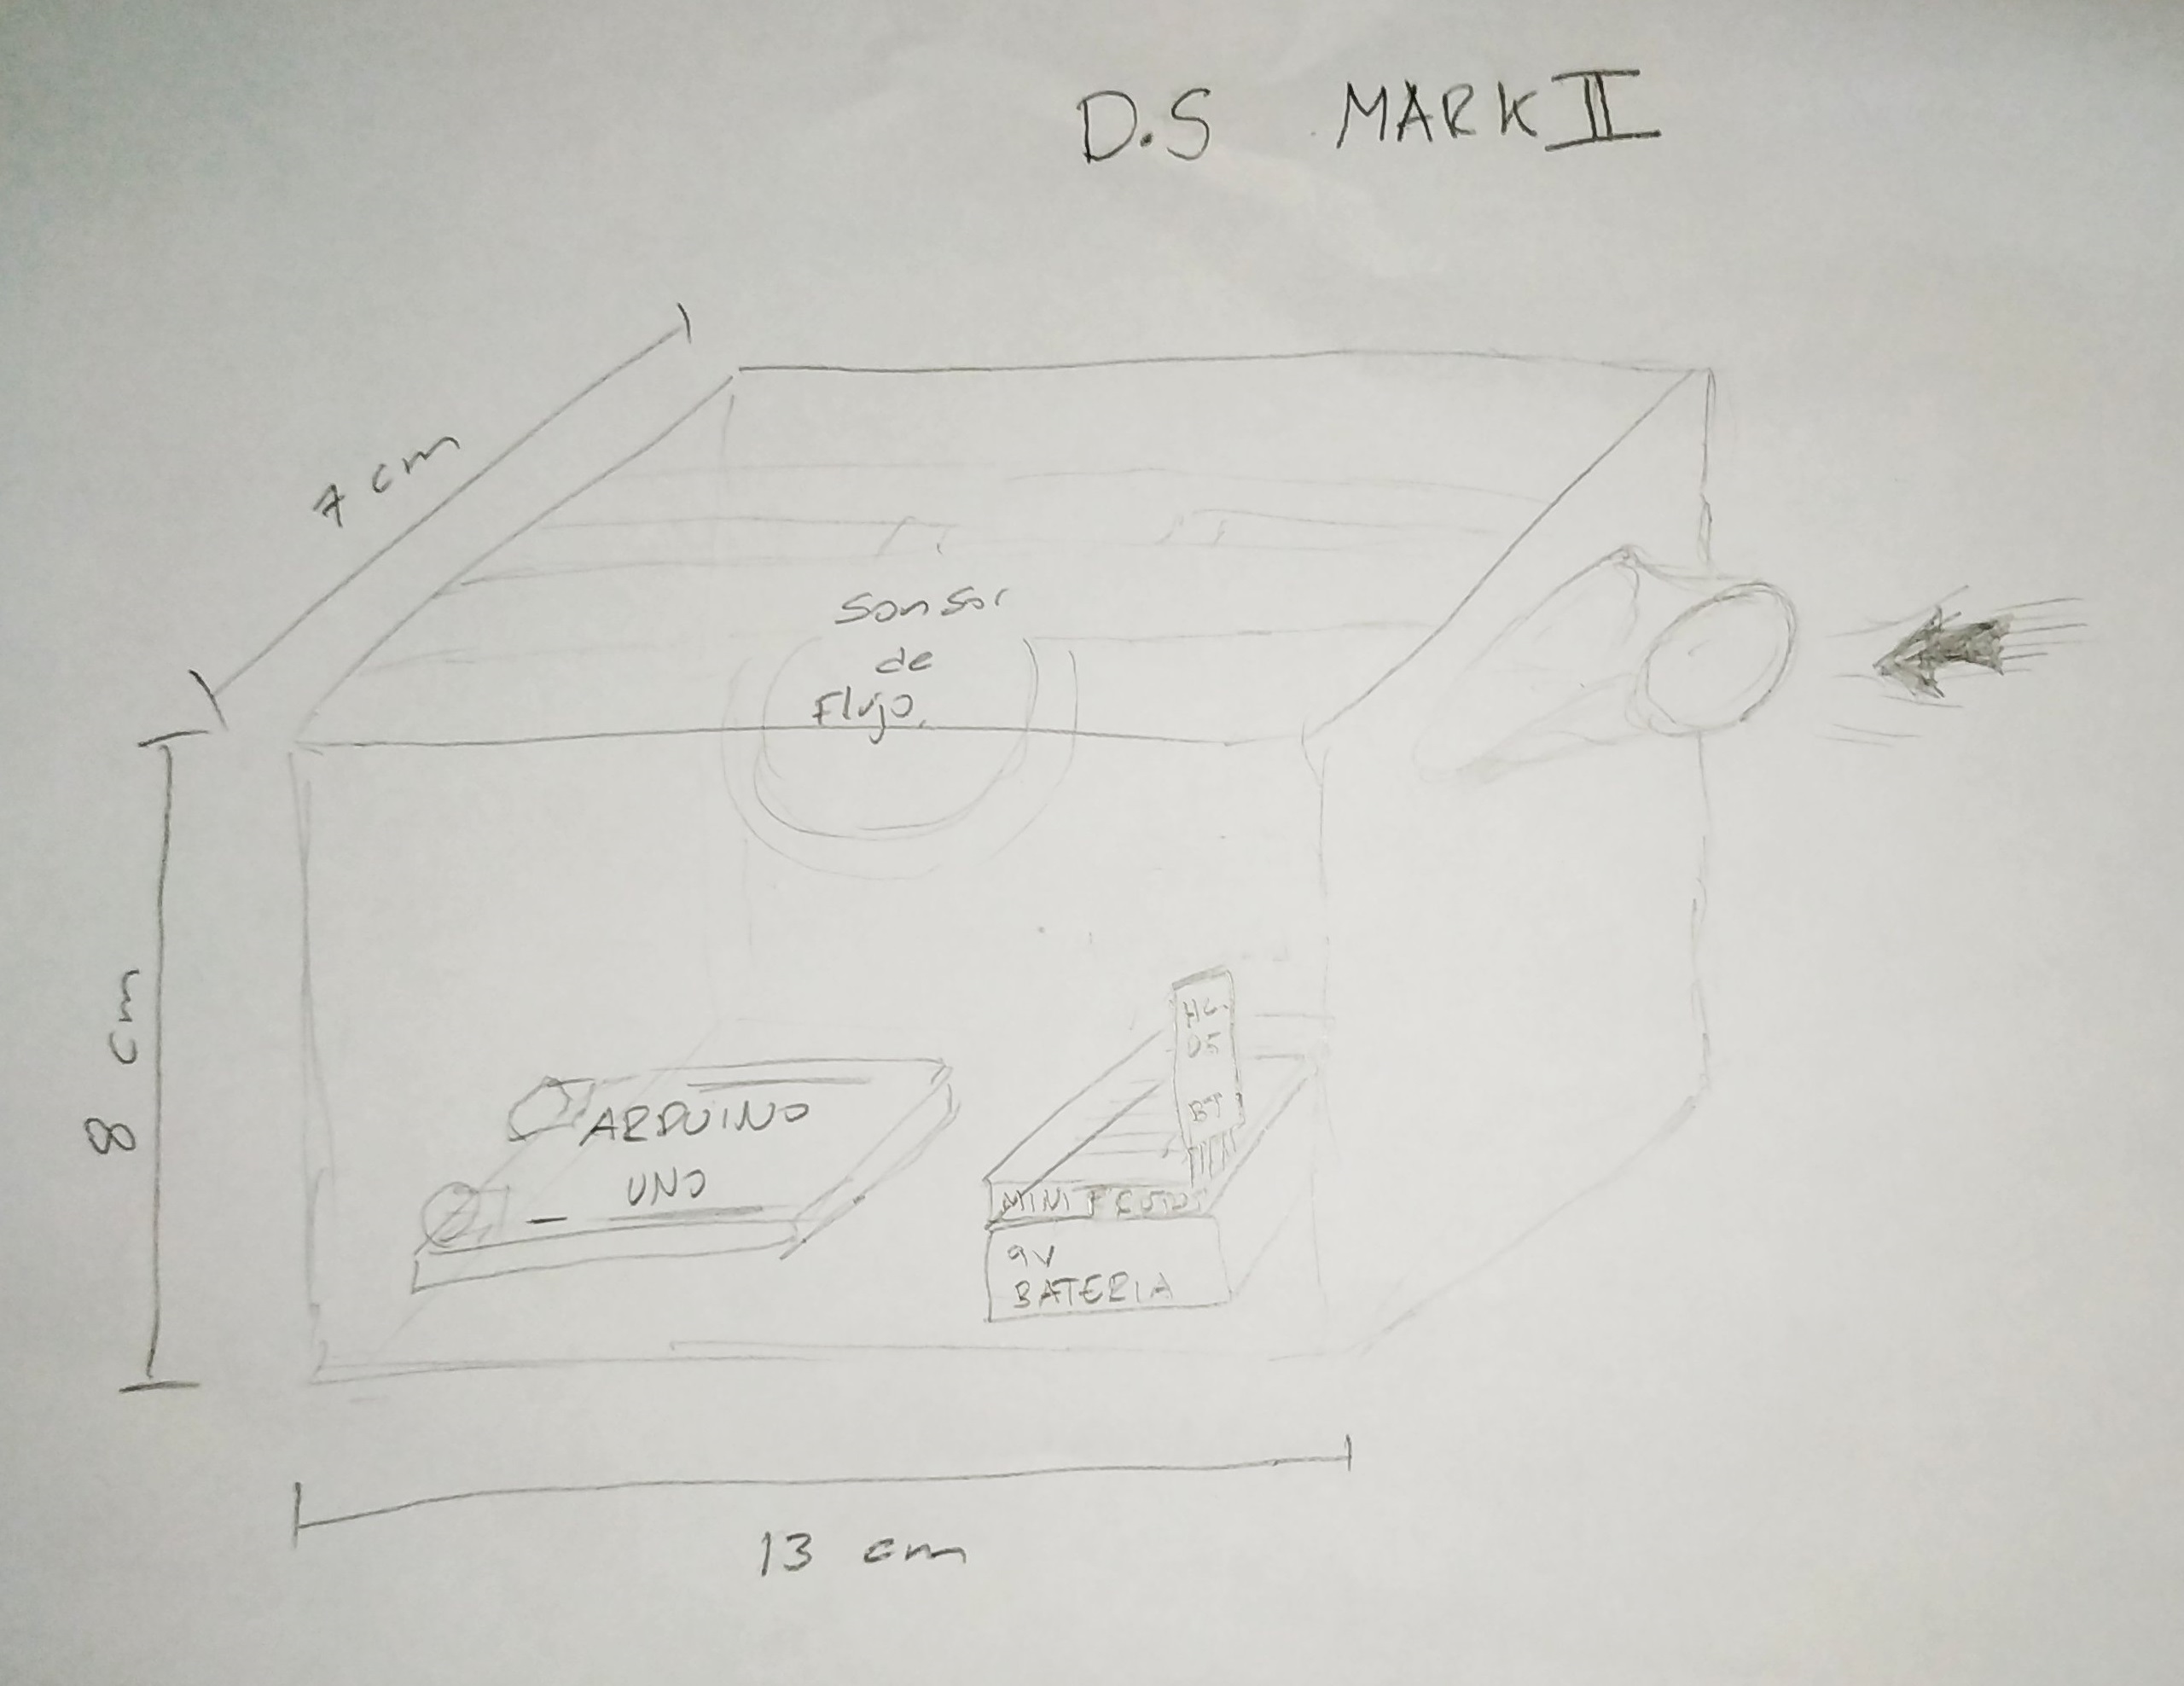 D.S MARK II
7 cm
Sensor
de
Flujo.
8 cm
HC-
05
BT
ARDUINO
UNO
MINI PROTO
9V
BATERIA
13 cm